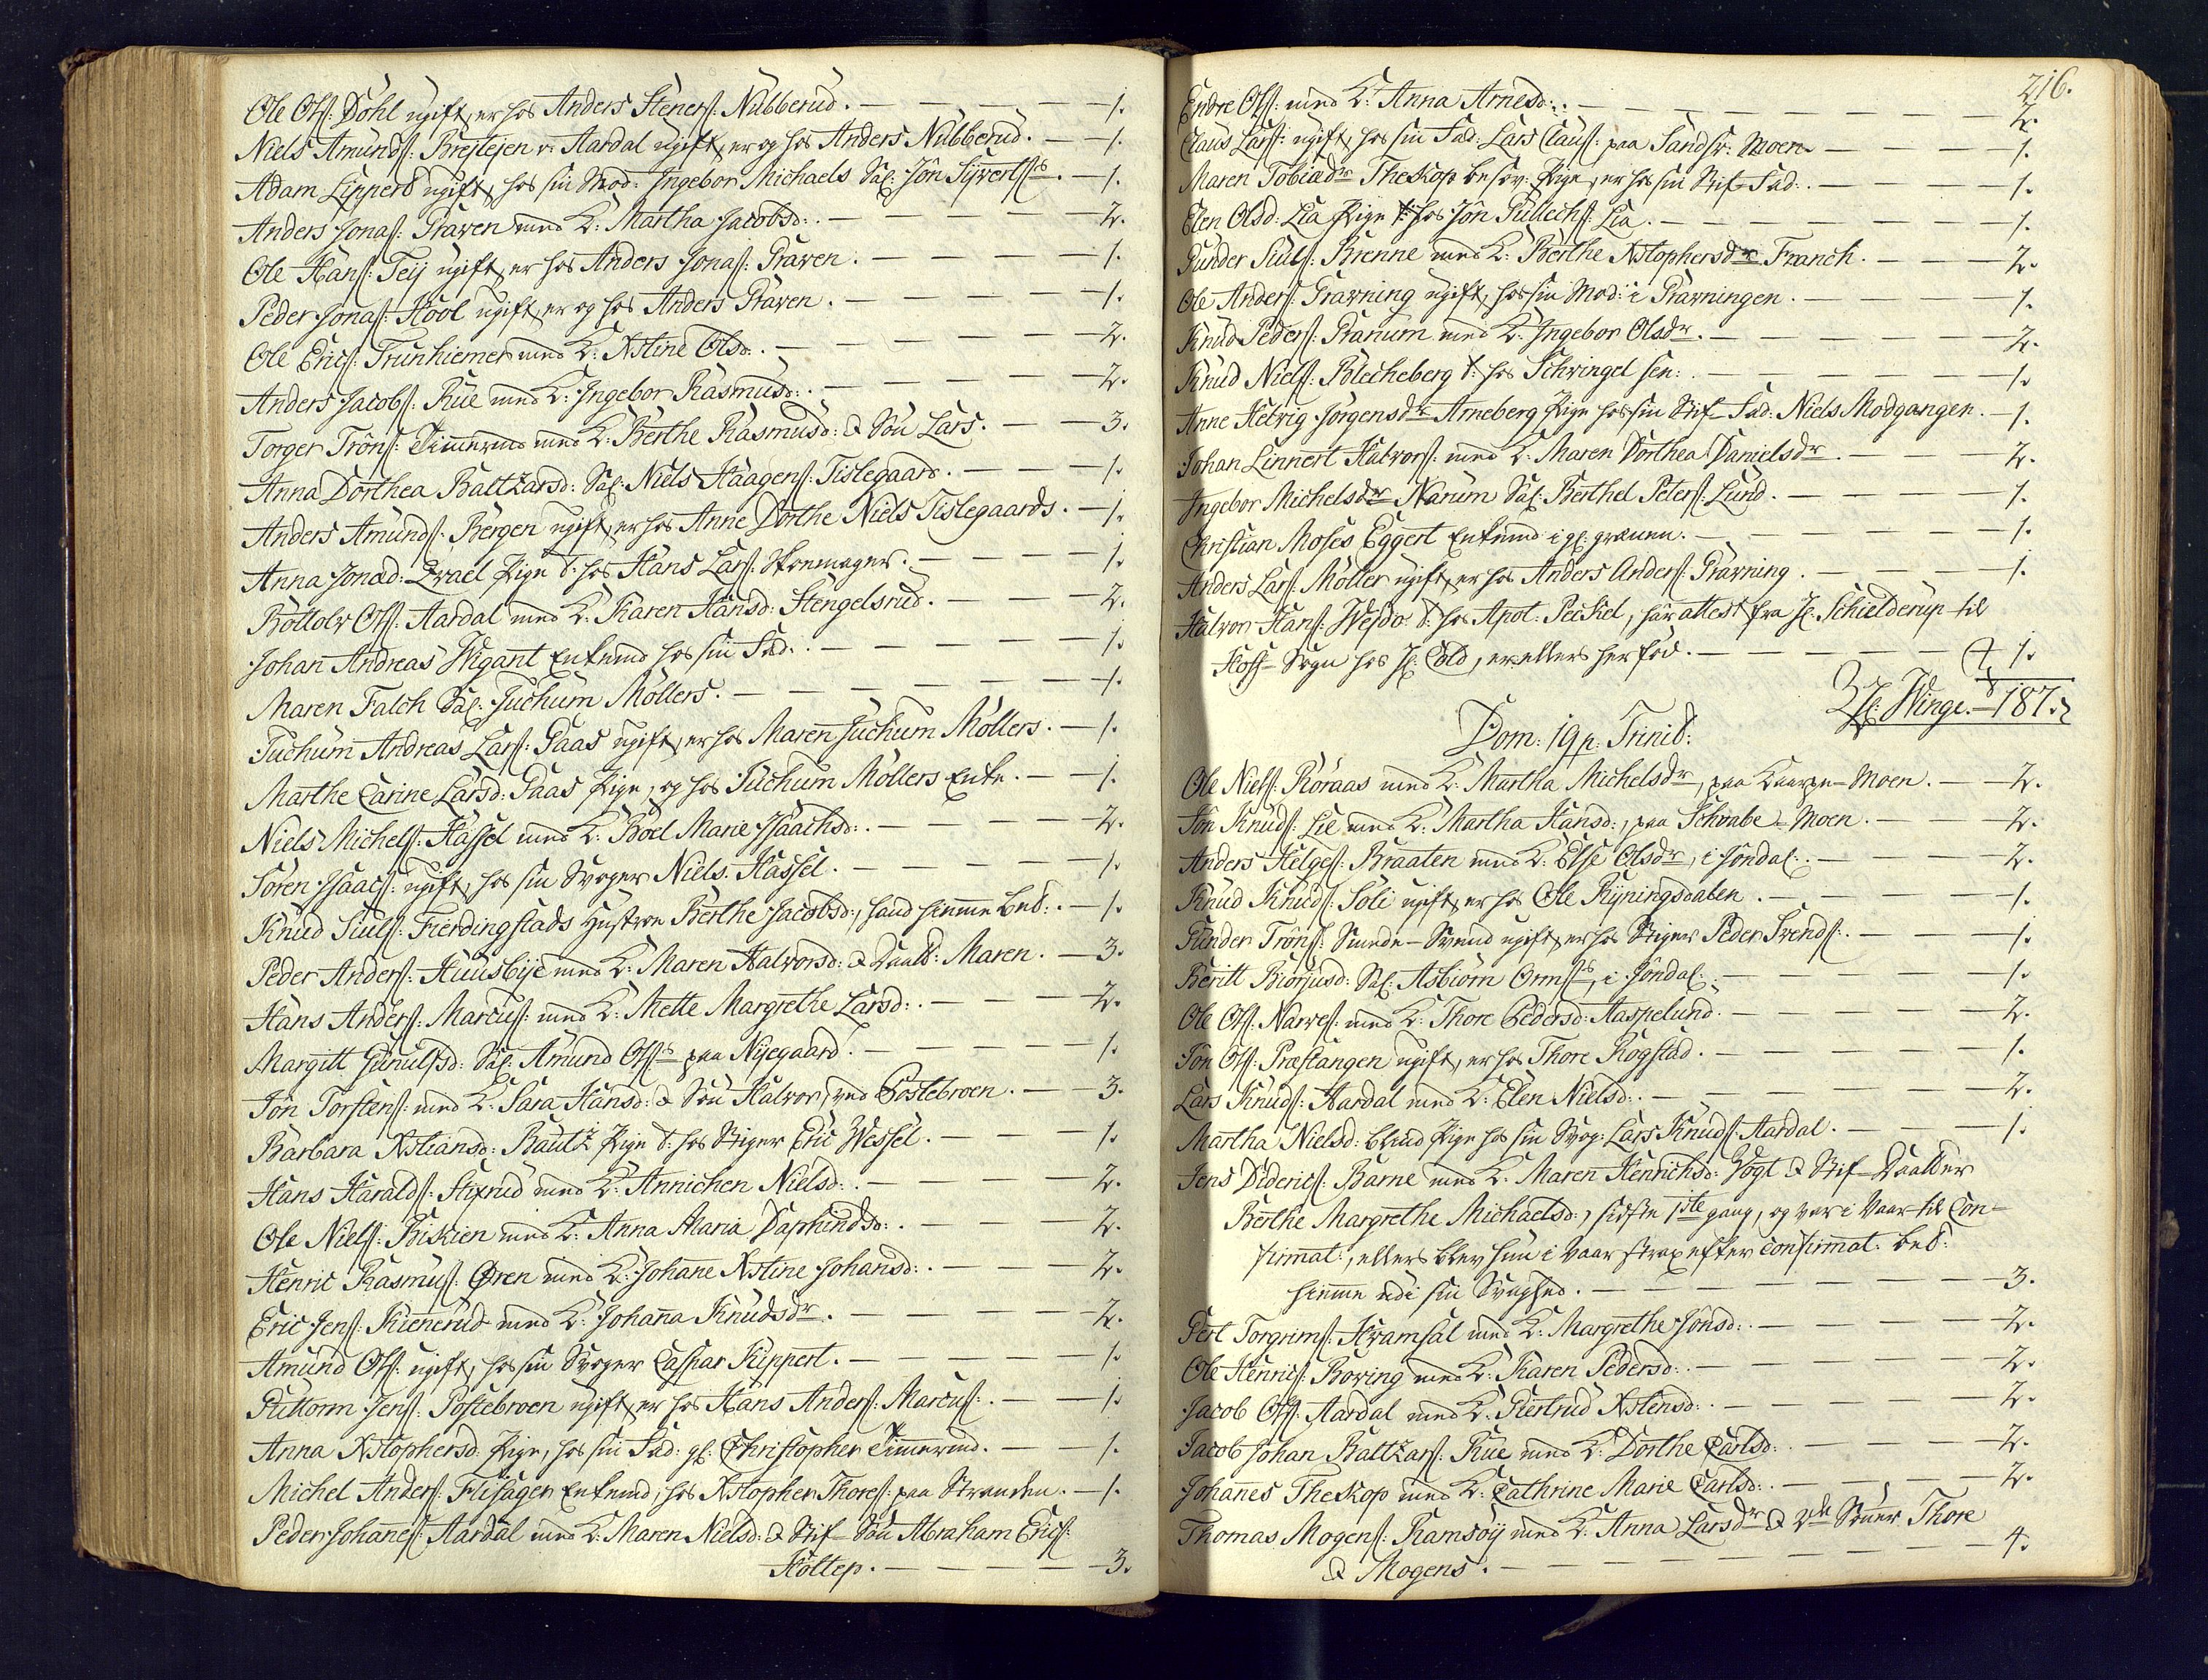 Ole Ols: Dohl ugift, er hos Anders Steners: Nubberud. — 1.
Niels Amunds: Brejlejen v. Aardal ugift, er og hos Anders Nubberud. — 1.
Adam Lippert ugift, hos sin Mod: Ingebor Michaels Sal: Jôn Syverts:s. — 1.
Anders Jonas: Graven med K: Martha Jacobsd: — 2.
Ole Hans: Teij ugift, er hos Anders Jonas: Graven. — 1.
Peder Jonas: Hool ugift, er og hos Anders Graven. — 1.
Ole Erics: Trunhiemer med K: Xstine Olsd: — 2.
Anders Jacobs: Rue med K: Ingebor Rasmusd: — 2.
Torger Trôns: Timmermd med K: Berthe Rasmusd: & Søn Lars. — 3.
Anna Dorthea Baltzarsd: Sal: Niels Haagens: Tislegaard. — 1.
Anders Amunds: Bergen ugift, er hos Anne Dorthe Niels Tislegaards. — 1.
Anna Jonæd: Qvæel Pige t: hos Hans Lars: Skomager. — 1.
Bottolv Ols: Aardal med K: Karen Hansd: Stengelsrud. — 2.
Johan Andreas Wigant Enkemd hos sin Fad: — 1.
Maren Falch Sal: Juchum Möllers. — 1.
Juchum Andreas Lars: Gaas ugift, er hos Maren Juchum Möllers. — 1.
Marthe Carine Larsd: Gaas Pige, og hos Juchum Möllers Enke. — 1.
Niels Michels: Hassel med K: Boel Marie Isaachsd: — 2.
Søren Isaacs: ugift, hos sin Svoger Niels Hassel. — 1.
Knud Siuls: Fierdingstads Hustroe Berthe Jacobsd:, hand hiemme bet: — 1.
Peder Anders: Huusbije med K: Maren Halvorsd: & Daatt: Maren. — 3.
Hans Anders: Marcus: med K: Mette Margrethe Larsd: — 2.
Margitt Gunulfsd: Sal: Amund Ols:s paa Nijegaard. — 1.
Jôn Torstens: med K: Sara Hansd: & Søn Halvor, ved Postebroen. — 3.
Barbara Xstiansd: Bautz Pige t: hos Stiger Eric Wessel. — 1.
Hans Haralds: Stixrud med K: Annichen Nielsd: — 2.
Ole Niels: Biskien med K: Anna Maria Daphindsd: — 2.
Henric Rasmus: Øren med K: Johane Xstine Johansd: — 2.
Eric Jens: Kienerud med K: Johana Knudsdr. — 2.
Amund Ols: ugift, hos sin Svoger Caspar Kippert. — 1.
Guttorm Jens: Postebroen ugift, er hos Hans Anders: Marcus: — 1.
Anna Xstophersd: Pige, hos sin Fad: gl: Christopher Timmermd. — 1.
Michel Anders: Flisager Enkemd, hos Xstopher Thores: paa Stranden. — 1.
Peder Johannes: Aardal med K: Maren Nielsd: & Stif-Søn Abraham Erics:
Holtep. — 3.
216.
Endre Ols: med K: Anna Arnesd: — 2.
Claus Lars: ugift, hos sin Fad: Lars Claus: paa Sandsv: Moen. — 1.
Maren Tobiædr Theskop besov: Pige, er hos sin Stif-Fad: — 1.
Elen Olsd: Lia Pige t: hos Jôn Gullechs: Lia. — 1.
Gunder Siuls: Brenne med K: Berthe Xstophersdr Franck. — 2.
Ole Anders: Gravning ugift, hos sin Mod: i Gravningen. — 1.
Knud Peders: Granum med K: Ingebor Olsdr. — 2.
Knud Niels: Blecheberg t: hos Schvingel sen: — 1.
Anne Helvig Jørgensdr Arneberg Pige hos sin Stif-Fad: Niels Modgangen. — 1.
Johan Linnert Halvors: med K: Maren Dorthea Danielsdr. — 2.
Ingebor Michelsdr Narum Sal: Berthel Peters: Lund. — 1.
Christian Moses Eggert Enkemd i gl: graven. — 1.
Anders Lars: Möller ugift, er hos Anders Anders: Gravning. — 1.
Halvor Hans: Wejdo t: hos Apot: Peckel, har attest fra H: Schielderup til
Hoff-Sogn hos H: Cold, er ellers her fød. — 1.
H: Winge. — 187.
Dom: 19 p: Trinit:
Ole Niels: Röraas med K: Martha Michelsdr, paa Kaarpe-Moen. — 2.
Jôn Knuds: Lie med K: Martha Hansd:, paa Schvabe-Moen. — 2.
Anders Helges: Braaten med K: Else Olsdr, i Jôndal: — 2.
Knud Knuds: Soli ugift, er hos Ole Ryningsdalen. — 1.
Gunder Trôns: Smede-Svend ugift, er hos Stiger Peder Svends: — 1.
Beritt Biørjusd: Sal: Asbiörn Orms:s, i Jôndal: — 1.
Ole Ols: Narves: med K: Thore Pedersd: Aaspelund. — 2.
Jôn Ols: Præstangen ugift, er hos Thore Rogstad. — 1.
Lars Knuds: Aardal med K: Elen Nielsd: — 2.
Martha Nielsd: blind Pige hos sin Svog: Lars Knuds: Aardal. — 1.
Jens Diderics: Barne med K: Maren Henrichsd: Vogt & Stif-Daatter
Berthe Margrethe Michaelsd:, sidste 1ste gang, og var i Vaar til Con-
firmat:, ellers blev hun i Vaar strax efter confirmat: bet:
hiemme udi sin Svaghed. — 3.
Gert Torgrims: Hvamsal med K: Margrethe Jônsd: — 2.
Ole Henrics: Boring med K: Karen Pedersd: — 2.
Jacob Ols: Aardal med K: Giertrud Xstensd: — 2.
Jacob Johan Baltzars: Rue med K: Dorthe Carlsd: — 2.
Johannes Theskop med K: Cathrine Marie Carlsd: — 2.
Thomas Mogens: Ramsöij med K: Anna Larsdr & 2de Sønner Thore
& Mogens. — 4.